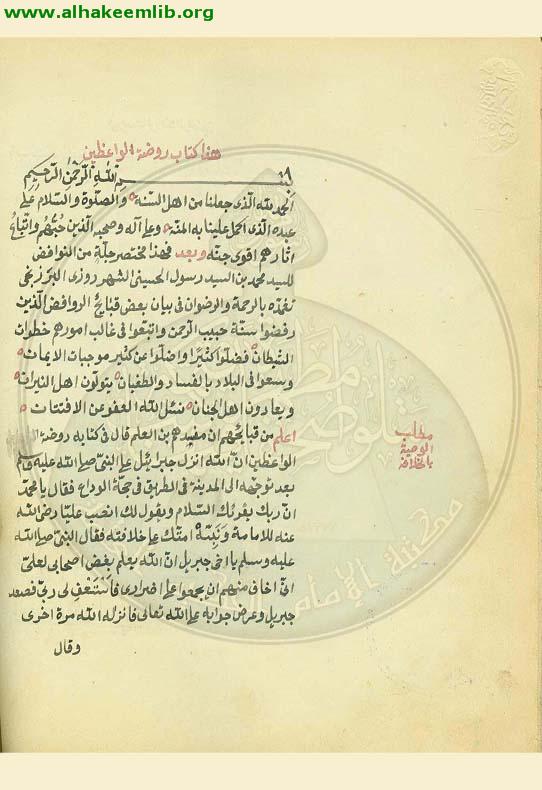 www.alhakeemlib.org
هذا كتاب روضة الواعظين
بسم الله الرحمن الرحيم
الحمد لله الذي جعلنا من اهل السنة والصلوة والسلام على
عبده الذي اكمل علينا به المنة وعلى آله وصحبه الذين حبهم واتباع
اثارهم اقوى جنة وبعد فهذا مختصر جلة من النوافض
للسيد محمد بن السيد رسول الحسيني الشهرزوري البرزنجي
تغمده بالرحمة والرضوان في بيان بعض قبايح الروافض الذين
رفضوا سنة حبيب الرحمن واتبعوا في غالب امورهم خطوات
الشيطان فضلوا كثيرا واضلوا عن كثير موجبات الايمان
وسعوا في البلاد بالفساد والطغيان يتولون اهل النيران
ويعادون اهل الجنان نسئل الله العفو عن الافتتان
اعلم من قبائحهم ان مفيدهم بن المعلم قال في كتابه روضة
الواعظين ان الله انزل جبرائيل على النبي صلى الله عليه وسلم
بعد توجهه الى المدينة في الطريق في حجة الوداع فقال يا محمد
ان ربك يقرئك السلام ويقول لك انصب عليا رضي الله
عنه للامامة ونبه امتك على خلافته فقال النبي صلى الله
عليه وسلم يا اخي جبريل ان الله يعلم بغض اصحابي لعلي
اني اخاف منهم ان يجمعوا على اضراري فاستعف لي ربي فصعد
جبريل وعرض جوابه على الله تعالى فانزله الله مرة اخرى
وقال
مطلب
الوصية
بالخلافة